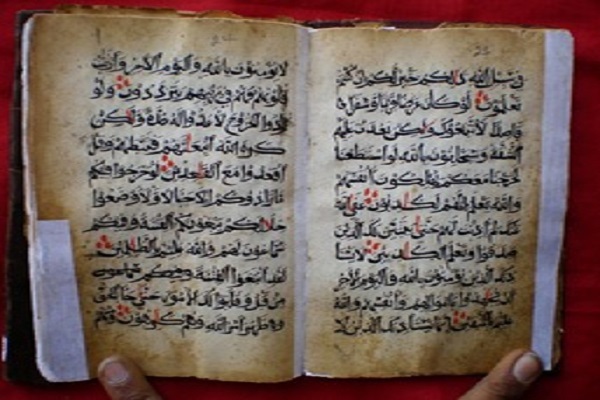 في سبيل الله ذلكم خير لكم ان كنتم
تعلمون لو كان عرضا قريبا وسفرا
قاصدا لاتبعوك ولكن بعدت عليهم
الشقة وسيحلفون بالله لو استطعنا
لخرجنا معكم يهلكون انفسهم
والله يعلم انهم لكذبون عفا الله
عنك لم اذنت لهم حتى يتبين لك الذين
صدقوا وتعلم الكذبين لا يستا
ذنك الذين يؤمنون بالله واليوم الاخر
ان يجهدوا باموالهم وانفسهم والله
عليم بالمتقين انما يستاذنك الذين لا
لا يؤمنون بالله واليوم الاخر وارتابت
قلوبهم فهم في ريبهم يترددون ولو
ارادوا الخروج لاعدوا له عدة ولكن
كره الله انبعاثهم فثبطهم وقيل
اقعدوا مع القعدين لو خرجوا فيكم
ما زادوكم الا خبالا ولاوضعوا
خللكم يبغونكم الفتنة وفيكم
سماعون لهم والله عليم بالظلمين
لقد ابتغوا الفتنة وفيكم سماعون
من قبل وقلبوا لك الامور حتى جاء الحق
وظهر امر الله وهم كرهون ومنهم